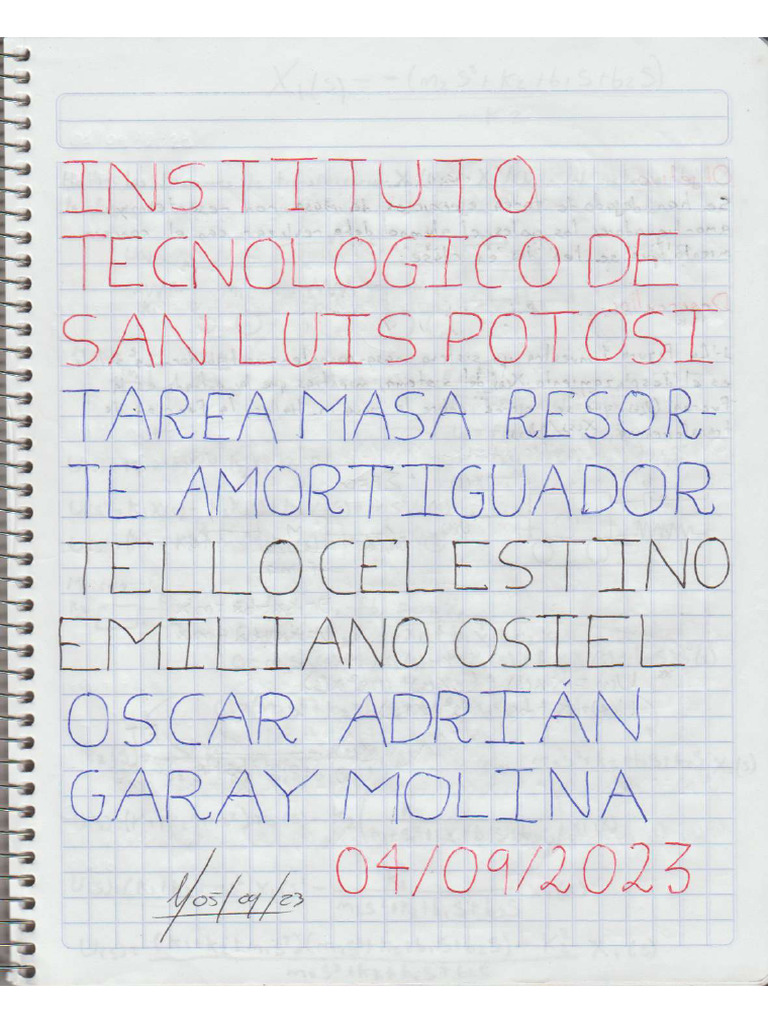 INSTITUTO
TECNOLOGICO DE
SAN LUIS POTOSI
TAREA MASA RESOR-
TE AMORTIGUADOR
TELLO CELESTINO
EMILIANO OSIEL
OSCAR ADRIÁN
GARAY MOLINA
04/09/2023
05/09/23